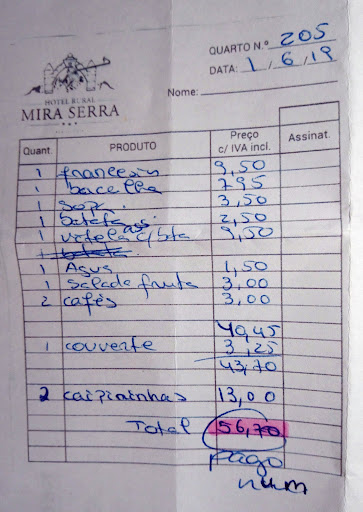 QUARTO N.º 205
DATA: 1 / 6 / 19
HOTEL RURAL
MIRA SERRA
Nome:
Quant. PRODUTO Preço c/ IVA incl. Assinat.
1 9,50
1 7,95
1 3,50
1 batatas 2,50
1 vitela c/ bta 9,50
1 batata
1 Agua 1,50
1 Salada fruta 3,00
2 cafés 3,00
40,45
1 couverte 3,25
43,70
2 caipirinhas 13,00
Total 56,70
pago
num